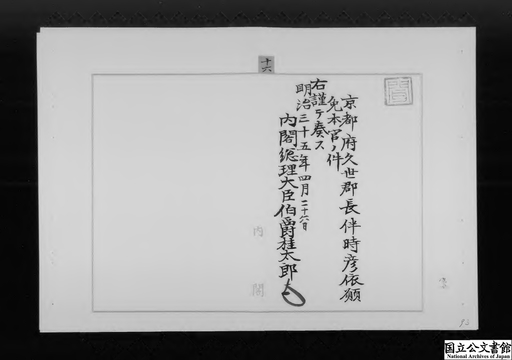 十六
京都府久世郡長伴時彦依願
免本官ノ件
右謹テ奏ス
明治三十五年四月二十六日
内閣総理大臣伯爵桂太郎
内閣
国立公文書館
National Archives of Japan